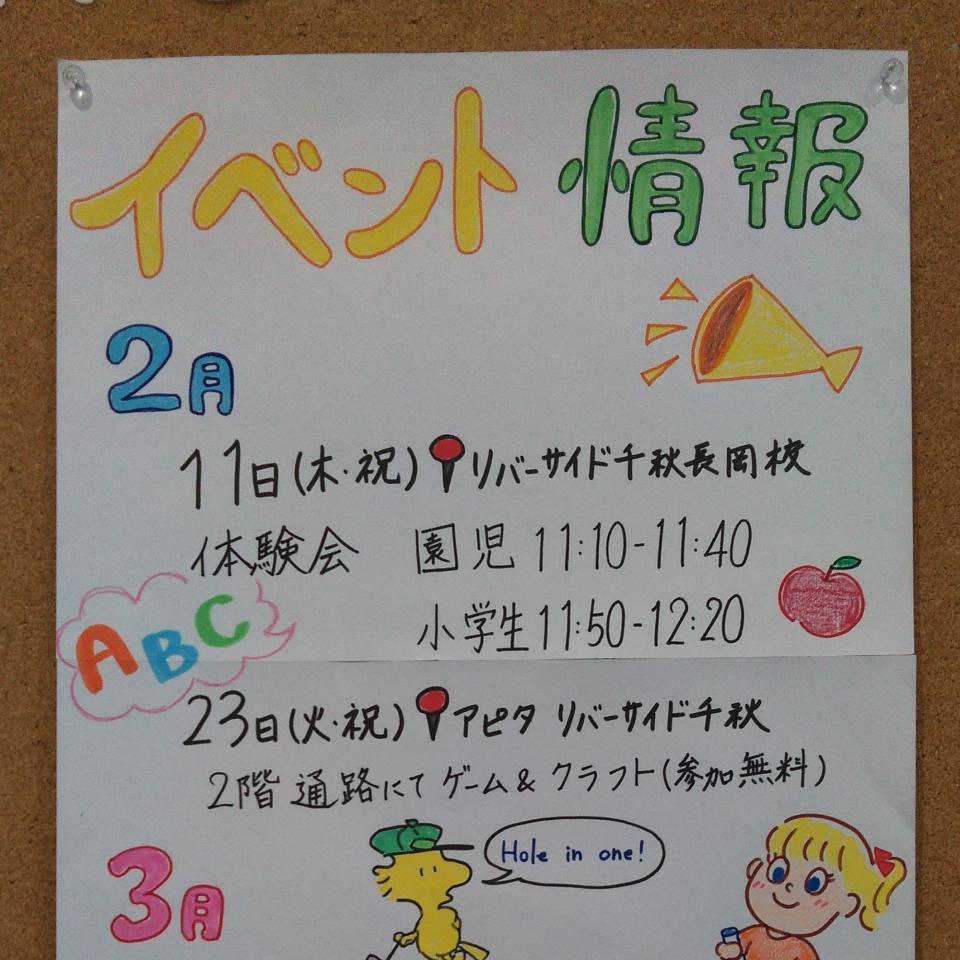 イベント 情報
2月
11日(木・祝) リバーサイド千秋長岡校
体験会 園児 11:10-11:40
小学生 11:50-12:20
ABC
23日(火・祝) アピタ リバーサイド千秋
2階 通路にて ゲーム & クラフト(参加無料)
Hole in one!
3月